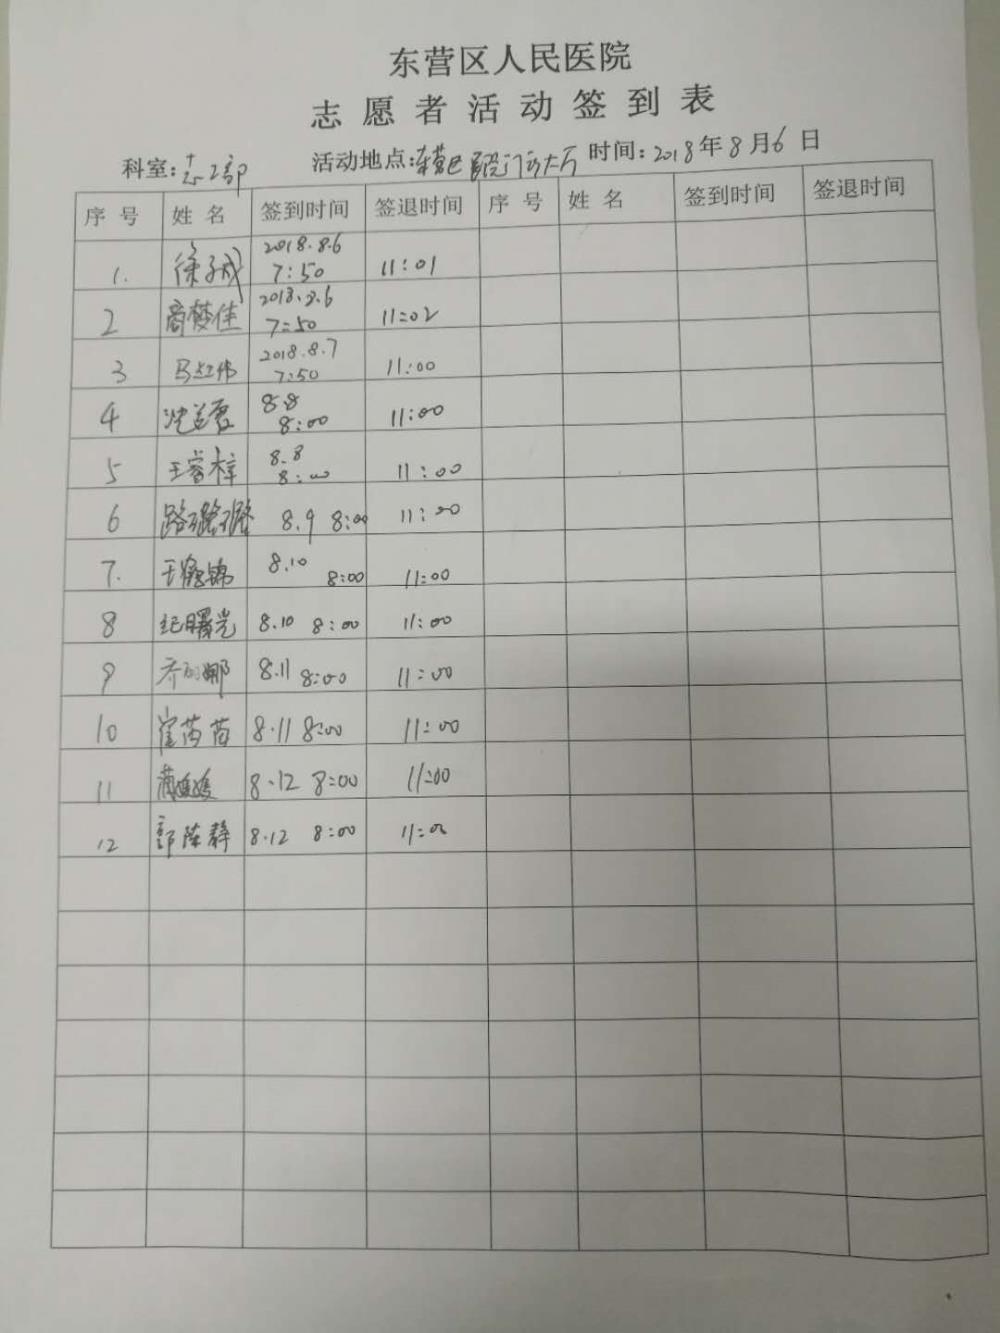 东营区人民医院
志愿者活动签到表
科室:志工部 活动地点:东营区医院门诊大厅 时间:2018年8月6日
序号 姓名 签到时间 签退时间 序号 姓名 签到时间 签退时间
1. 徐子成 2018.8.6 7:50 11:01
2 商梦佳 2018.8.6 7:50 11:02
3 马红伟 2018.8.7 7:50 11:00
4 8.8 8:00 11:00
5 王睿梓 8.8 8:00 11:00
6 路璐璐 8.9 8:00 11:00
7. 王鹤锦 8.10 8:00 11:00
8 纪曙光 8.10 8:00 11:00
9 8.11 8:00 11:00
10 崔芮茵 8.11 8:00 11:00
11 8.12 8:00 11:00
12 郭陈静 8.12 8:00 11:00